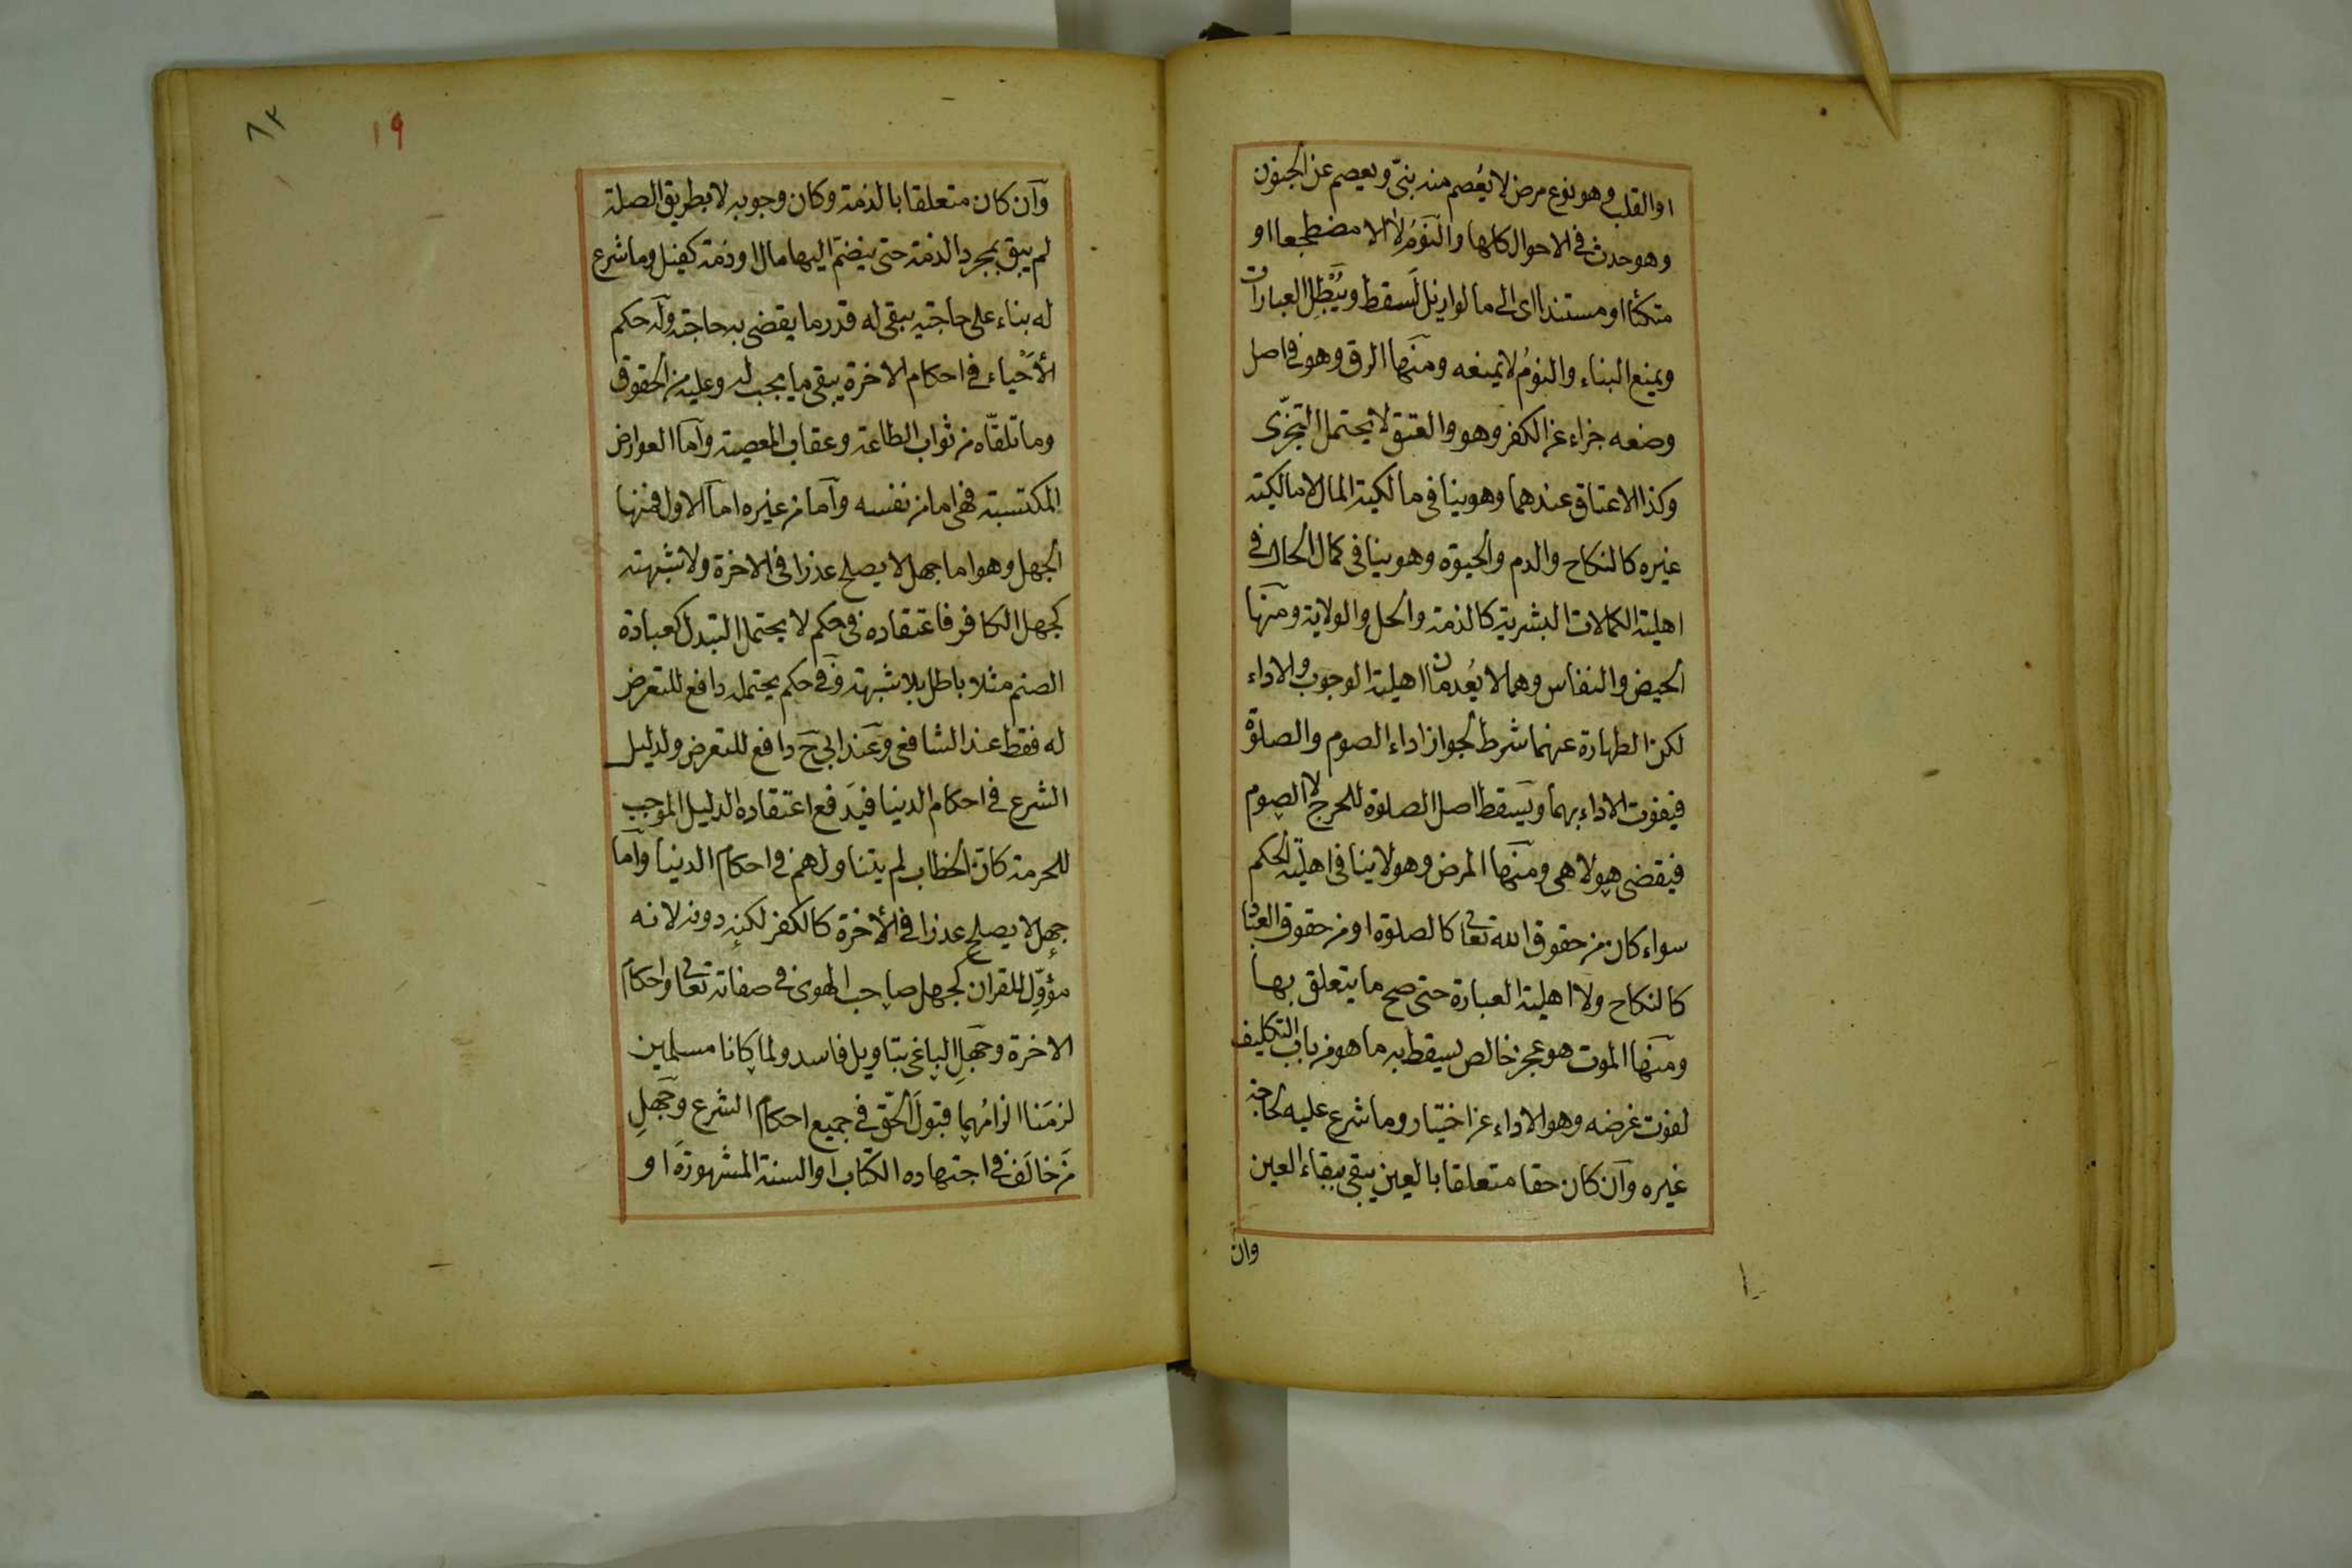 او القلب وهو نوع مرض لا يعصم منه نبىّ ويعصم عن الجنون
وهو حدث فى الاحوال كلها والنَّومُ لا الا مضطجعا او
متكئا او مستندا اى الى ما لو ازيل لَسقط ويُبْطِل العبارات
ويمنع البناء والنومُ لا يمنعه ومنها الرق وهو فى اصل
وضعه جزاء عن الكفر وهو والعتق لا يحتمل التجزّى
وكذا الاعتاق عندهما وهو ينافى مالكية المال لا مالكية
غيره كالنكاح والدم والحيوة وهو ينافى كمال الحال فى
اهلية الكمالات البشرية كالذمة والحل والولاية ومنها
الحيض والنفاس وهما لا يُعْدمان اهلية الوجوب ولا الاداء
لكن الطهارة عنهما شرط لجواز اداء الصوم والصلوة
فيفوت الاداء بهما ويسقط اصل الصلوة للحرج لا الصوم
فيقضى هو لا هى ومنها المرض وهو لا ينافى اهليّة الحكم
سواء كان من حقوق الله تعالى كالصلوة او من حقوق العباد
كالنكاح ولا اهلية العبارة حتى صح ما يتعلق بها
ومنها الموت هو عجز خالص يسقط به ما هو من باب التكليف
لفوت غرضه وهو الاداء عن اختيار وما شرع عليه لحاجة
غيره وآن كان حقا متعلقا بالعين يبقى ببقاء العين
وان
١٩
٨٢
وآن كان متعلقا بالذمة وكان وجوبه لا بطريق الصلة
لم يبق بمجرد الذمة حتى ينضمّ اليها مال او ذمة كفيل وما شرع
له بناء على حاجته يبقى له قدر ما يقضى به حاجته وله حكم
الأحْياء فى احكام الاخرة يبقى ما يجب له وعليه من الحقوق
وما تلقّاه من ثواب الطاعة وعقاب المعصية وآما العوارض
المكتسبة فهى اما من نفسه وآما من غيره اما الاول فمنها
الجهل وهو اما جهل لا يصلح عذرا فى الاخرة ولا شبهة
كجهل الكافر فاعتقاده فى حكم لا يحتمل التبدل كعبادة
الصنم مثلا باطل بلا شبهة وفى حكم يحتمله دافع للتعرض
له فقط عند الشافعى وعند ابى ح دافع للتعرض ولدليل
الشرع فى احكام الدنيا فيَدفع اعتقاده الدليل الموجب
للحرمة كانّ الخطاب لم يتناولهم فى احكام الدنيا وآما
جهل لا يصلح عذرا فى الأخرة كالكفر لكنه دونه لانه
مؤوِّل للقران كجهل صاحب الهوى فى صفاته تعالى واحكام
الاخرة وجهلِ الباغى بتاويل فاسد ولما كانا مسلمين
لزمَنا الزامُهما قبولَ الحّق فى جميع احكام الشرع وجهلِ
من خالَف فى اجتهاده الكتاب او السنة المشهورة او